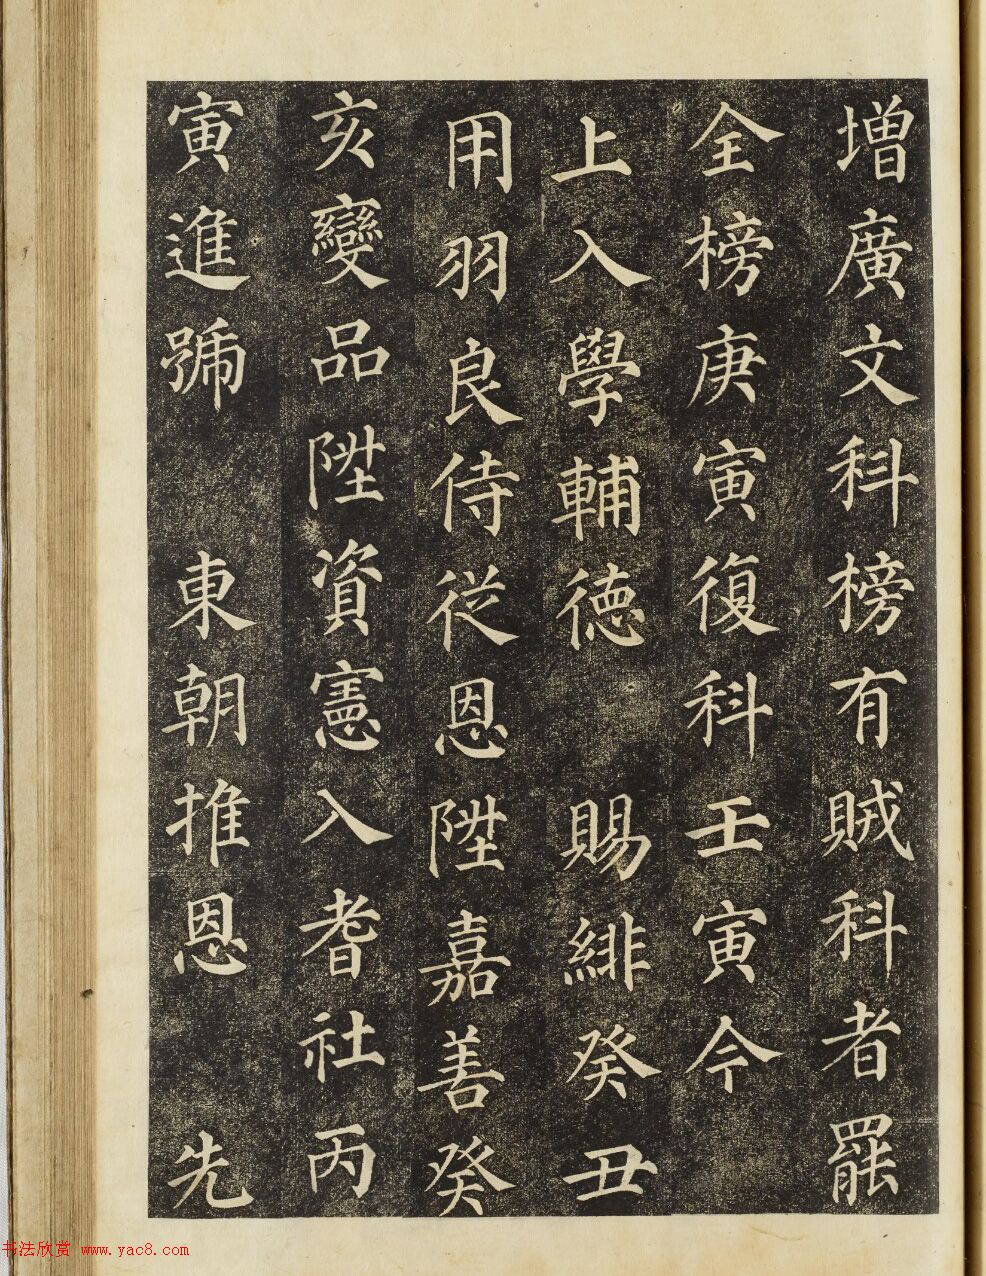 增廣文科榜有賊科者罷
全榜庚寅復科壬寅今
上入學輔德 賜緋癸丑
用羽良侍從恩陞嘉善癸
亥變品陞資憲入耆社丙
寅進號 東朝推恩 先
书法欣赏 www.yac8.com